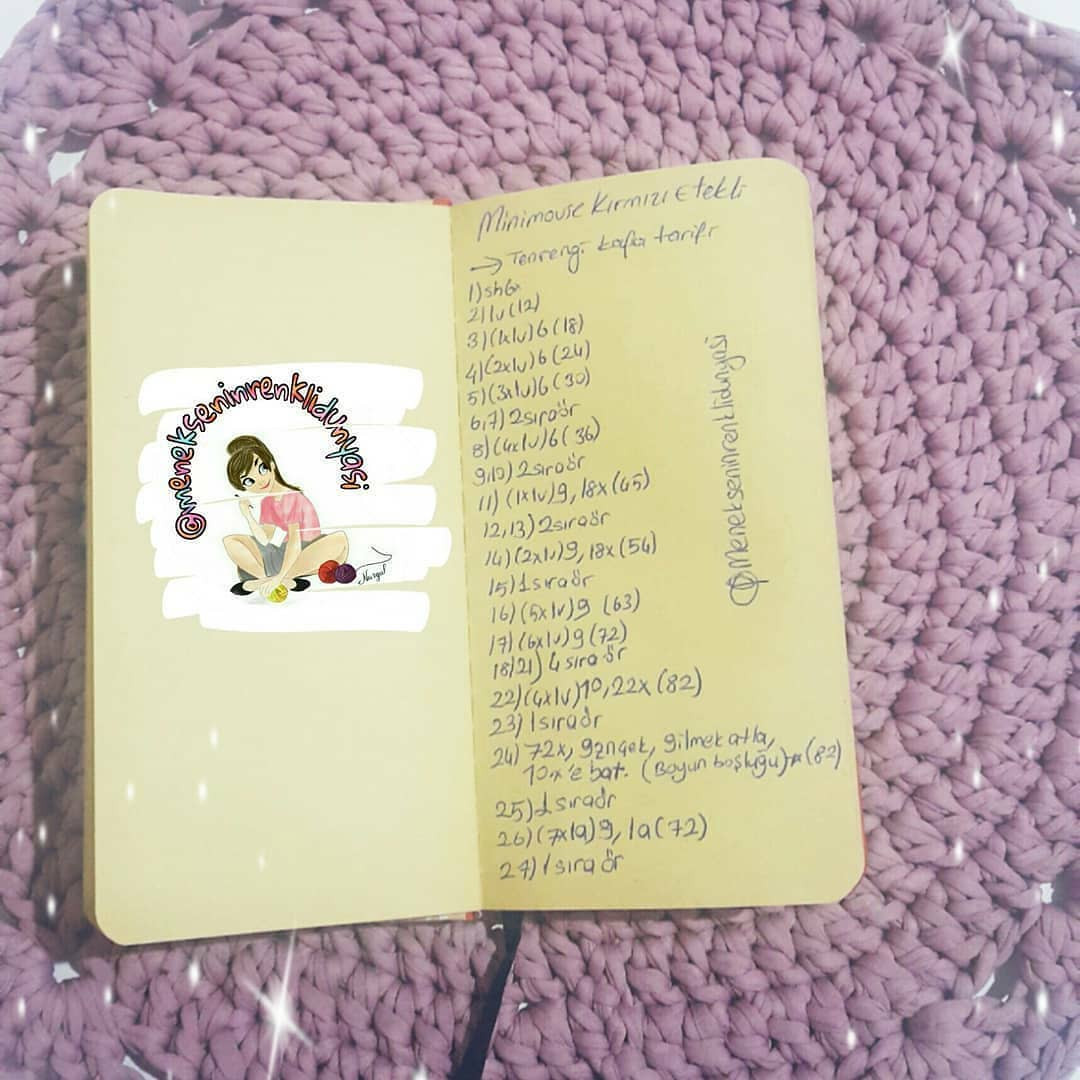 @menekseninrenklidunyasi
Nurgül
Minimouse Kırmızı Etekli
→ Tenrengi kafa tarifi
1) sh6x
2) 1v (12)
3) (1x1v) 6 (18)
4) (2x1v) 6 (24)
5) (3x1v) 6 (30)
6,7) 2 sıra ör
8) (4x1v) 6 (36)
9,10) 2 sıra ör
11) (1x1v) 9, 18x (45)
12,13) 2 sıra ör
14) (2x1v) 9, 18x (54)
15) 1 sıra ör
16) (5x1v) 9 (63)
17) (6x1v) 9 (72)
18/21) 4 sıra ör
22) (4x1v) 10, 22x (82)
23) 1 sıra ör
24) 72x, 9znçek, 9ilmek atla,
10x'e bat. (Boyun boşluğu) (82)
25) 1 sıra ör
26) (7x1a) 9, 1a (72)
27) 1 sıra ör
@menekseninrenklidunyasi